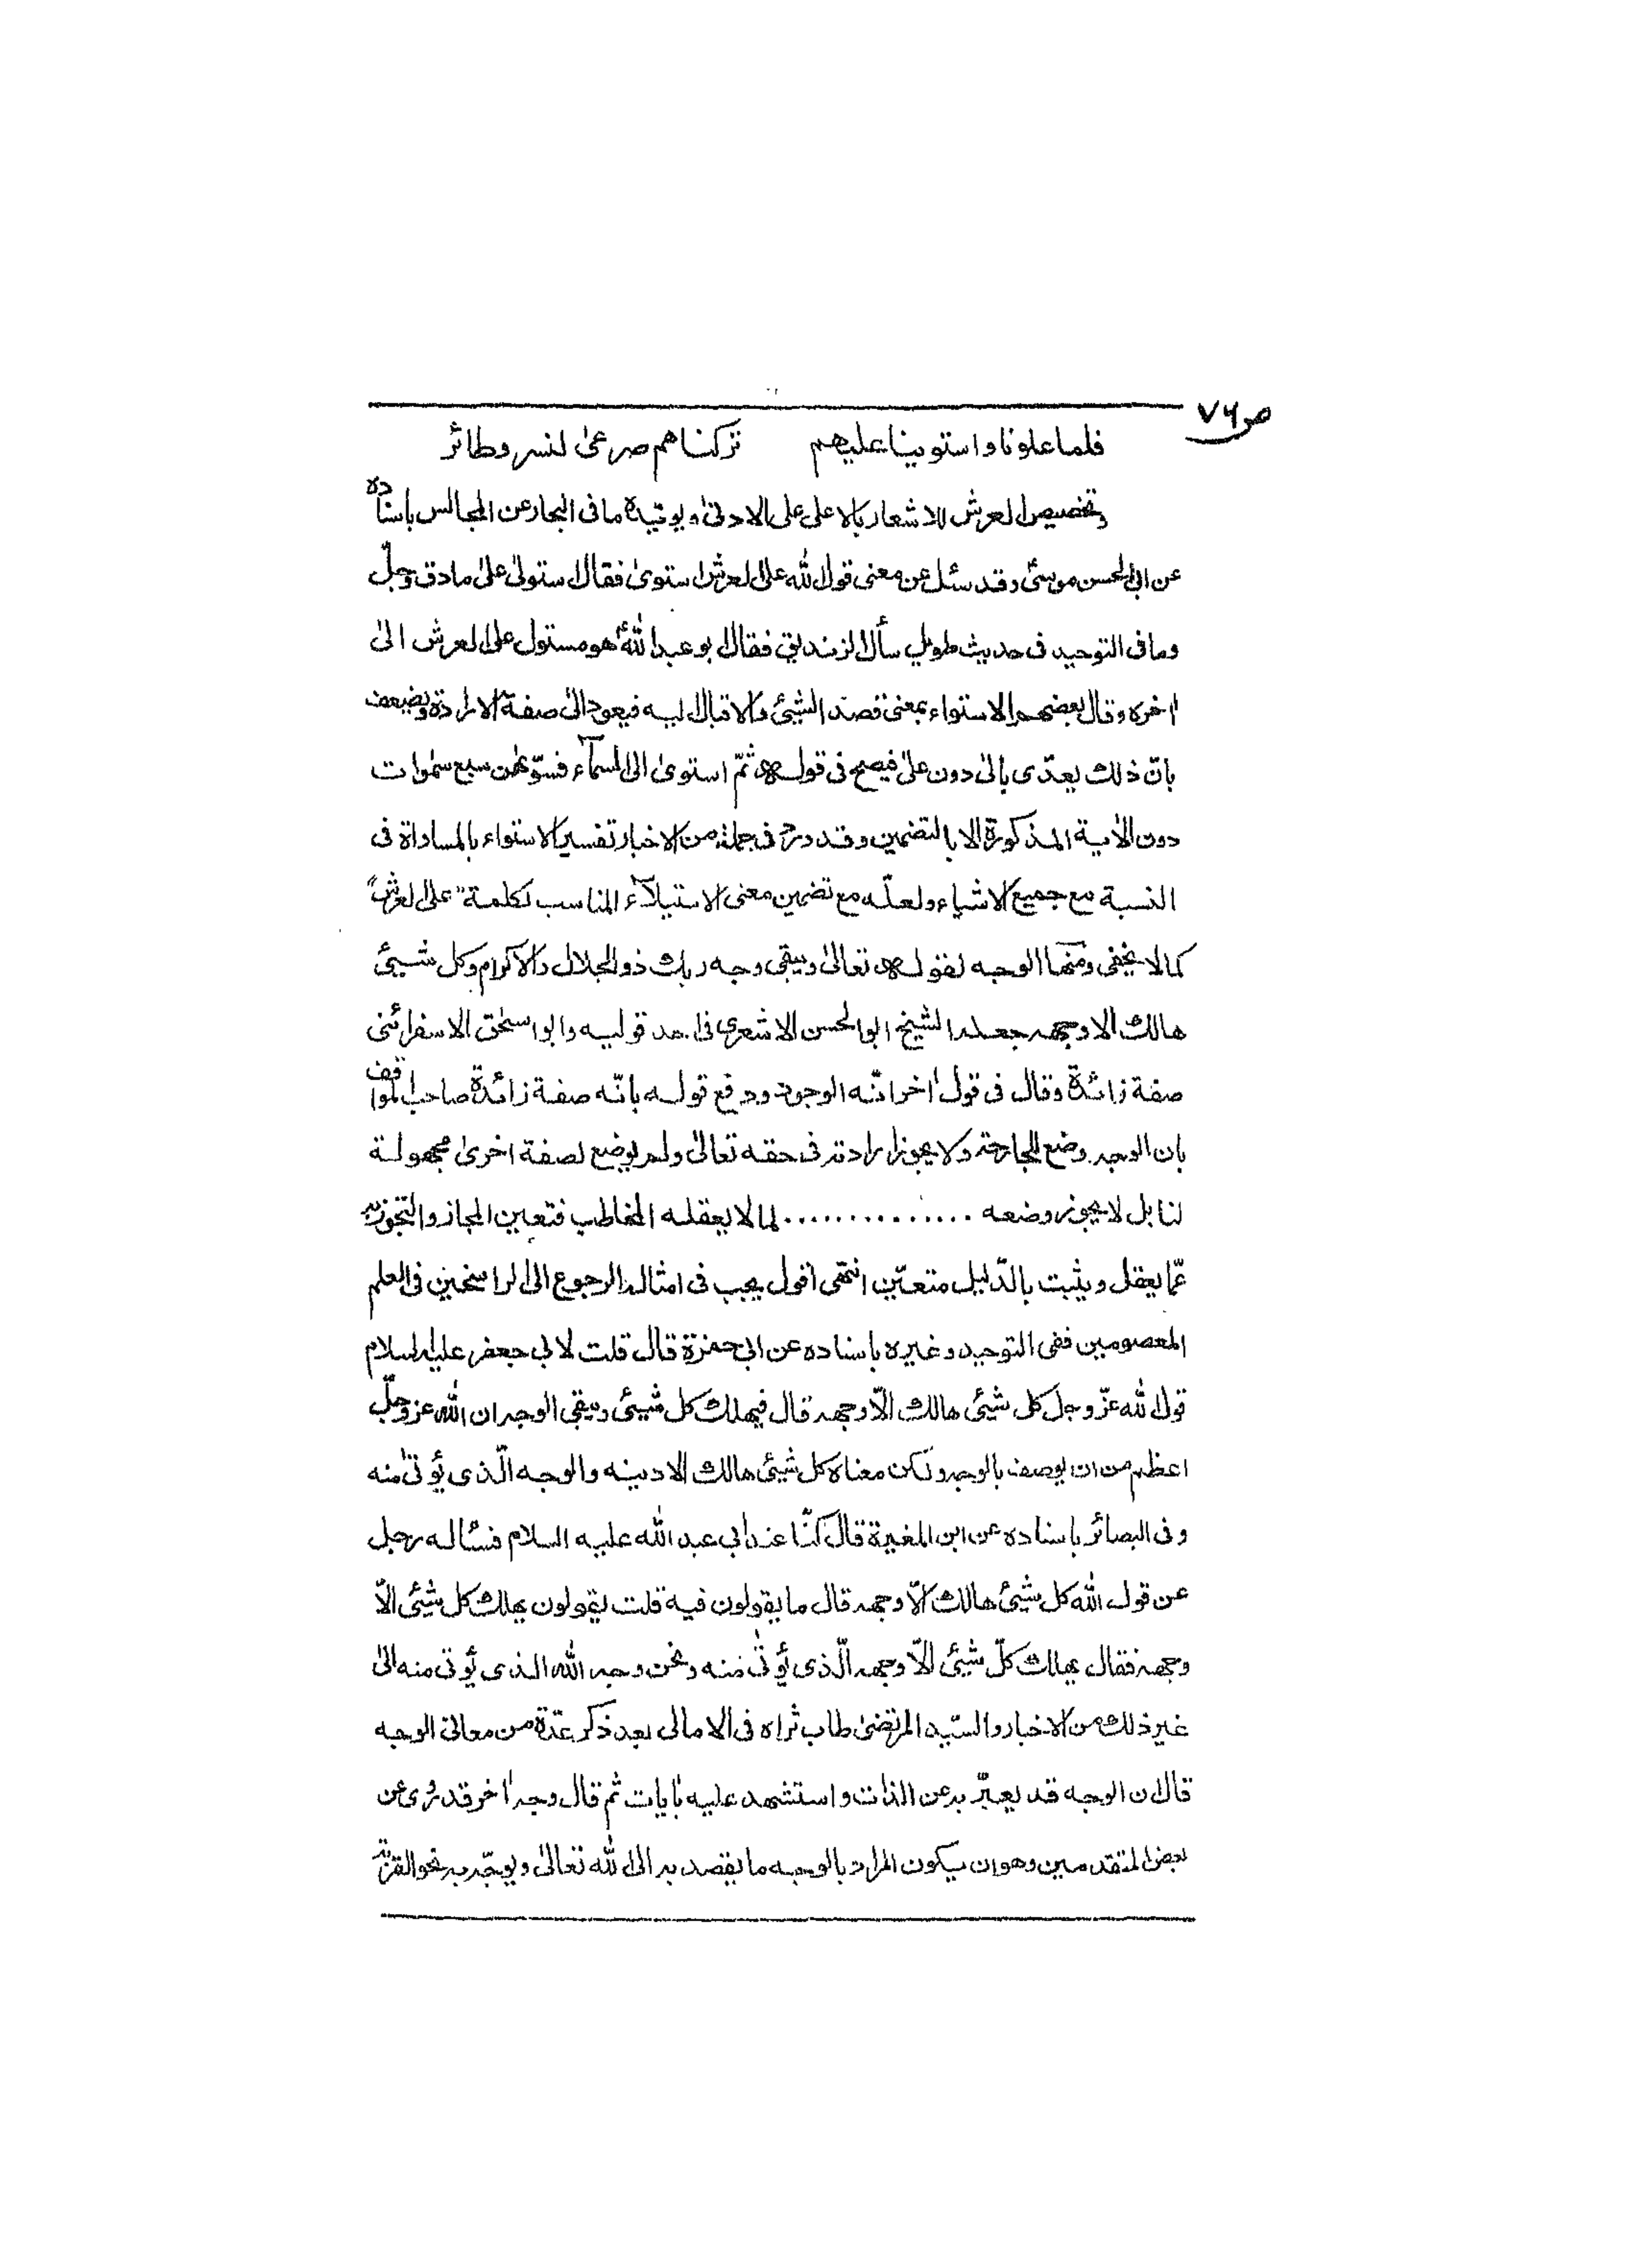 ص ٧٦
فلما علونا و استوينا عليهم تركناهم صرعىٰ لنسر و طائر
و تخصيص العرش للاشعار بالاعلى على الادنىٰ و يويّده ما فى البحار عن المجالس باسناده
عن ابى الحسن موسىٰ و قد سئل عن معنى قول الله على العرش استوىٰ فقال استولىٰ علىٰ ما دق و جلّ
و ما فى التوحيد فى حديث طويل سأل الزنديق فقال ابو عبد اللهؑ هو مستول على العرش الىٰ
اخره و قال بعضهم الاستواء بمعنى قصد الشيئ و الاقبال اليه فيعود الىٰ صفة الارادة و يضيعف
بانّ ذلك يعدّى بالىٰ دون علىٰ فيصح فى قوله ثمّ استوىٰ الى السمآء فسوّيٰهن سبع سمٰوات
دون الاٰية المذكورة الا بالتضمين و قد ورد فى جملة من الاخبار تفسير الاستواء بالمساواة فى
النسبة مع جميع الاشياء و لعلّه مع تضمين معنى الاستيلآء المناسب لكلمة "على العرش"
كما لا يخفى و منها الوجه لقوله تعالىٰ و يبقى وجه ربك ذو الجلال و الاكرام و كل شيئ
هالك الا وجهه جعله الشيخ ابو الحسن الاشعرى فى احد قوليه و ابو اسحٰق الاسفرائنى
صفة زائدة و قال فى قول اٰخر انّه الوجود و دفع قوله بانّه صفة زائدة صاحب المواقف
بان الوجه وضع للجارحة و لا يجوز ارادته فى حقه تعالىٰ و لم يوضع لصفة اخرىٰ مجهولة
لنا بل لا يجوز وضعه .............. لما لا يعقله المخاطب فتعين المجاز و التجوز به
عمّا يعقل و يثبت بالدّليل متعيّن انتهى اقول يجب فى امثاله الرجوع الى الراسخين فى العلم
المعصومين ففى التوحيد و غيره باسناده عن ابى حمزة قال قلت لابى جعفر عليه السلام
قول الله عزّ و جل كل شيئ هالك الّا وجهه قال فيهلك كل شيئ و يبقى الوجه ان الله عز و جلّ
اعظم من ان يوصف بالوجه و لكن معناه كل شيئ هالك الا دينه و الوجه الّذى يؤتىٰ منه
و فى البصائر باسناده عن ابن المغيرة قال كنّا عند ابى عبد الله عليه السلام فسئاله رجل
عن قول الله كل شيئ هالك الّا وجهه قال ما يقولون فيه قلت يقولون يهلك كل شيئ الّا
وجهه فقال يهلك كلّ شيئ الّا وجهه الّذى يؤتىٰ منه و نحن وجه الله الذى يؤتى منه الىٰ
غير ذلك من الاخبار و السيّد المرتضىٰ طاب ثراه فى الامالى بعد ذكر عدّة من معانى الوجه
قال ان الوجه قد يعبّر به عن الذات و استشهد عليه باٰيات ثم قال وجه اٰخر قد روى عن
بعض المتقدمين و هو ان يكون المراد بالوجه ما يقصد به الى الله تعالىٰ و يوجّه به نحو القربة